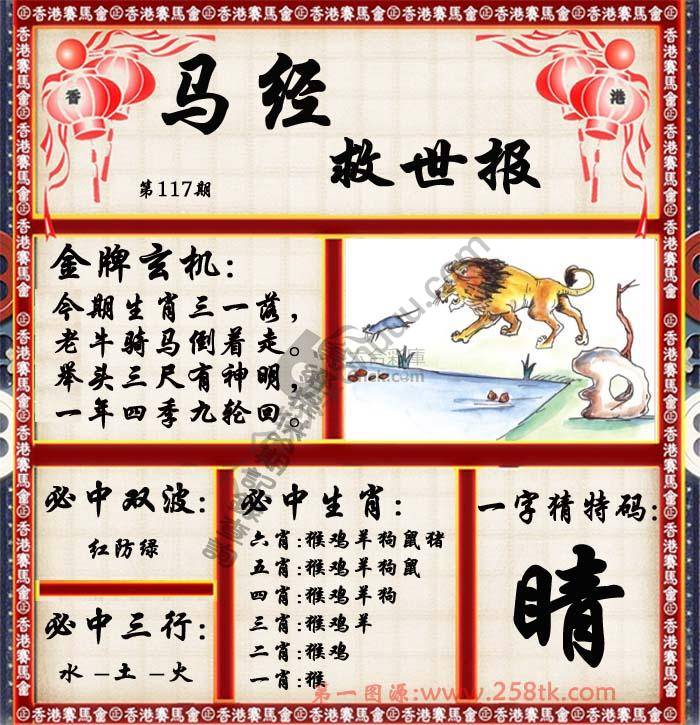 香港賽馬會
香
港
马经
救世报
第117期
金牌玄机:
今期生肖三一落，
老牛骑马倒着走。
举头三尺有神明，
一年四季九轮回。
必中双波:
红防绿
必中三行:
水-土-火
必中生肖:
六肖:猴鸡羊狗鼠猪
五肖:猴鸡羊狗鼠
四肖:猴鸡羊狗
三肖:猴鸡羊
二肖:猴鸡
一肖:猴
一字猜特码:
晴
第一图源:www.258tk.com